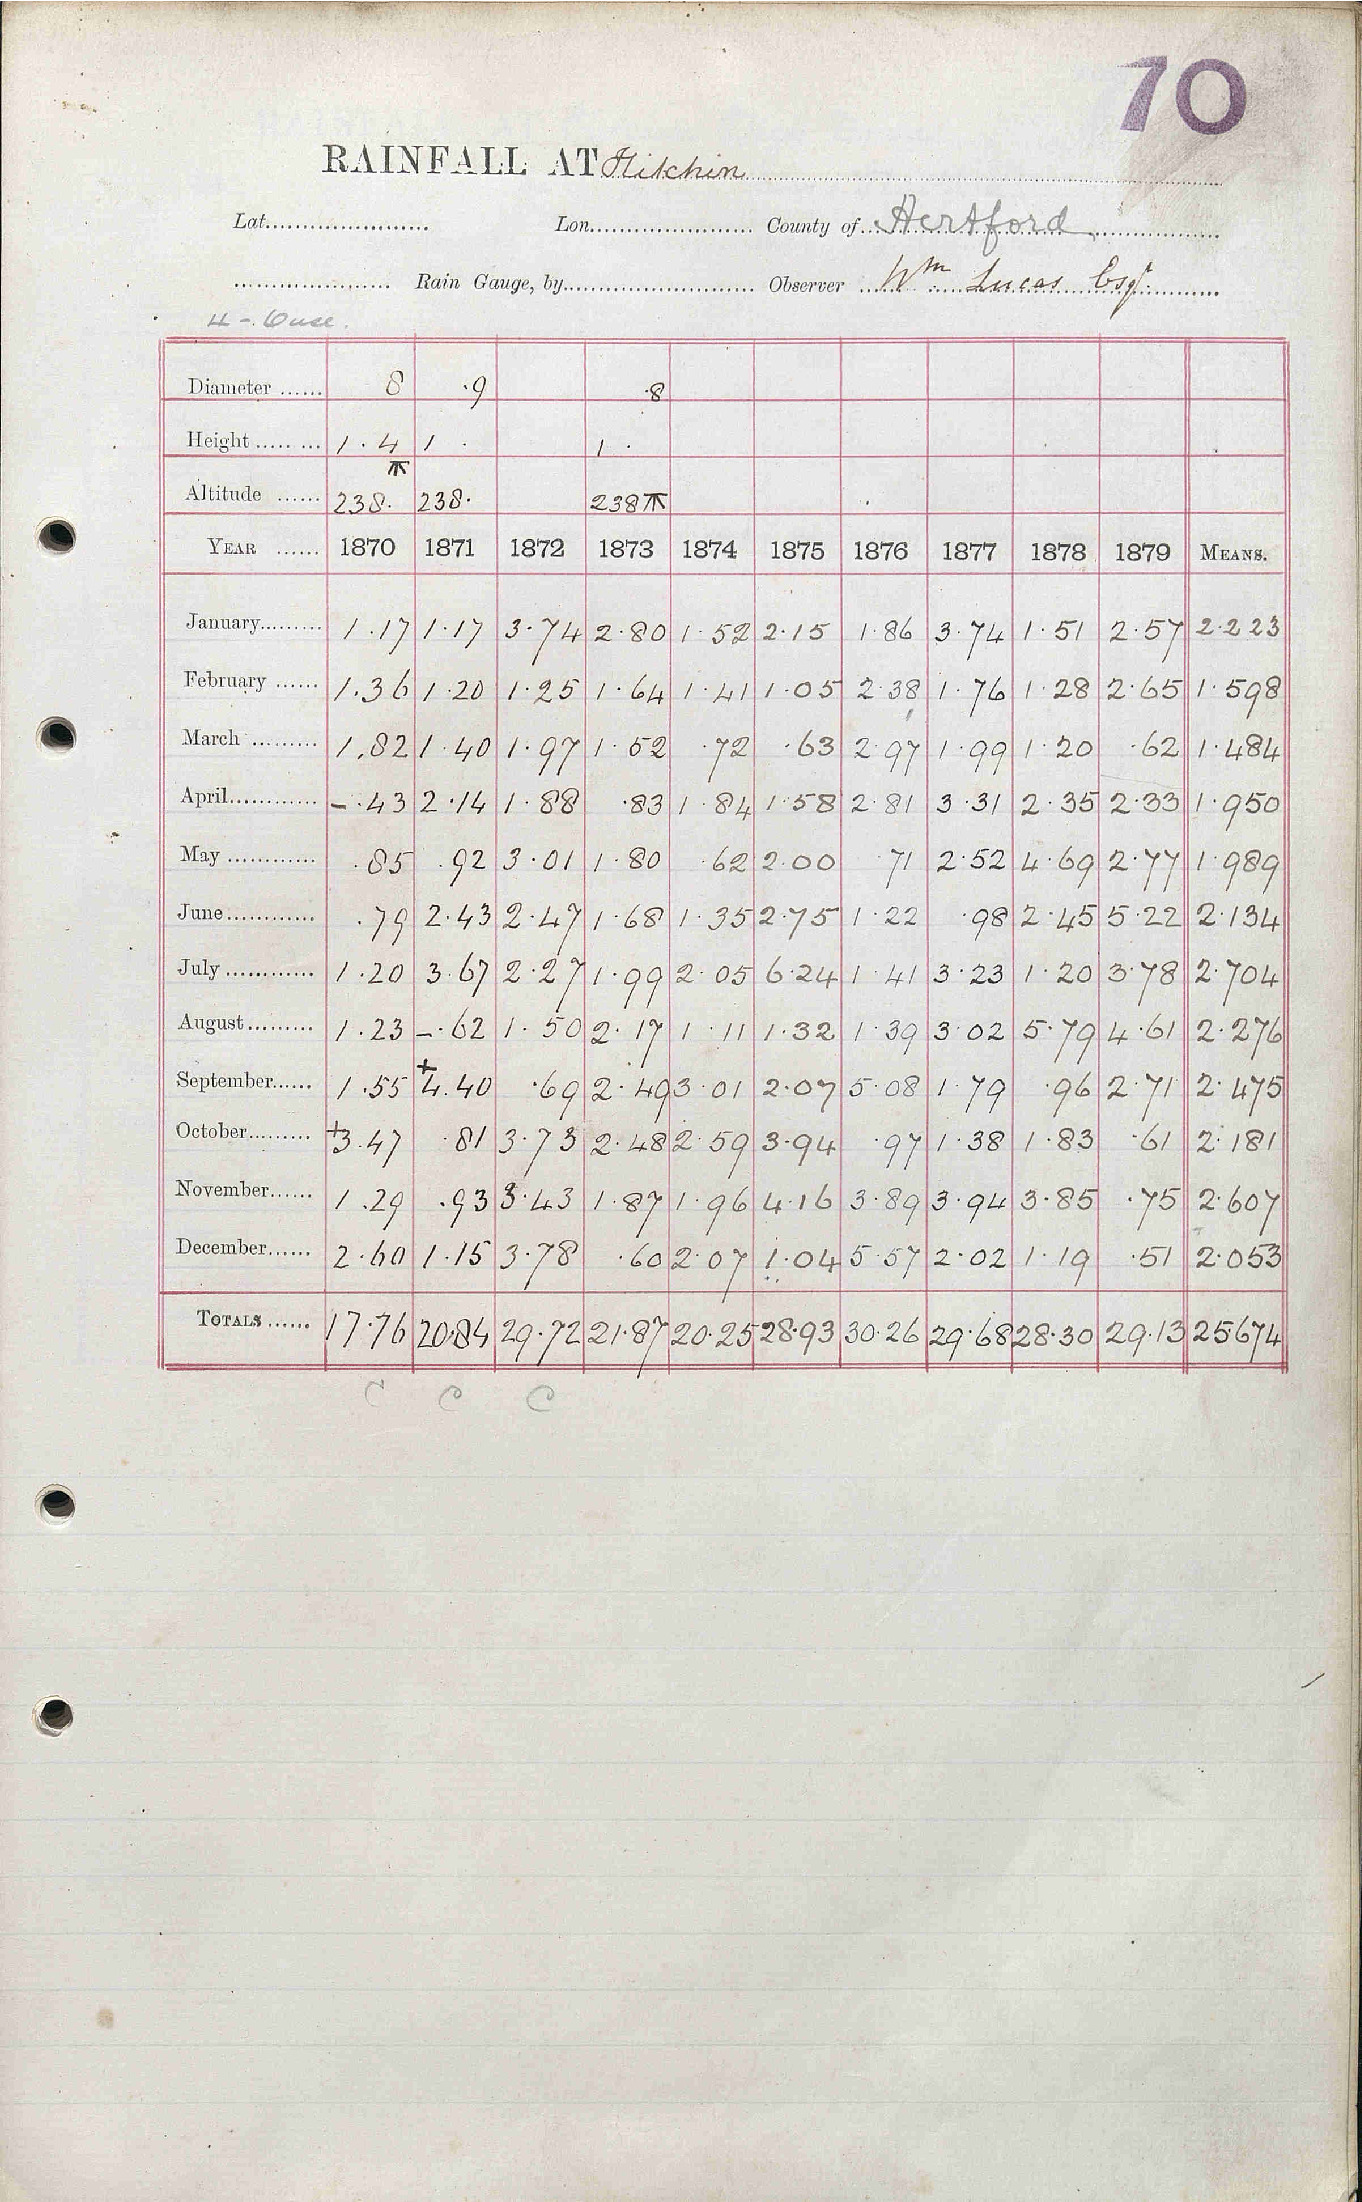 70
RAINFALL AT Hitchin
Lat. Lon. County of Hertford
Rain Gauge, by Observer Wm Lucas Esqr
4 - Ouse.
Diameter 8 .9 .8
Height 1.4 1. 1.
Altitude 238. 238. 238
YEAR 1870 1871 1872 1873 1874 1875 1876 1877 1878 1879 MEANS.
January 1.17 1.17 3.74 2.80 1.52 2.15 1.86 3.74 1.51 2.57 2.223
February 1.36 1.20 1.25 1.64 1.41 1.05 2.38 1.76 1.28 2.65 1.598
March 1.82 1.40 1.97 1.52 .72 .63 2.97 1.99 1.20 .62 1.484
April -.43 2.14 1.88 .83 1.84 1.58 2.81 3.31 2.35 2.33 1.950
May .85 .92 3.01 1.80 .62 2.00 .71 2.52 4.69 2.77 1.989
June .79 2.43 2.47 1.68 1.35 2.75 1.22 .98 2.45 5.22 2.134
July 1.20 3.67 2.27 1.99 2.05 6.24 1.41 3.23 1.20 3.78 2.704
August 1.23 -.62 1.50 2.17 1.11 1.32 1.39 3.02 5.79 4.61 2.276
September 1.55 +4.40 .69 2.49 3.01 2.07 5.08 1.79 .96 2.71 2.475
October +3.47 .81 3.73 2.48 2.59 3.94 .97 1.38 1.83 .61 2.181
November 1.29 .93 3.43 1.87 1.96 4.16 3.89 3.94 3.85 .75 2.607
December 2.60 1.15 3.78 .60 2.07 1.04 5.57 2.02 1.19 .51 2.053
TOTALS 17.76 20.84 29.72 21.87 20.25 28.93 30.26 29.68 28.30 29.13 25.674
C C C